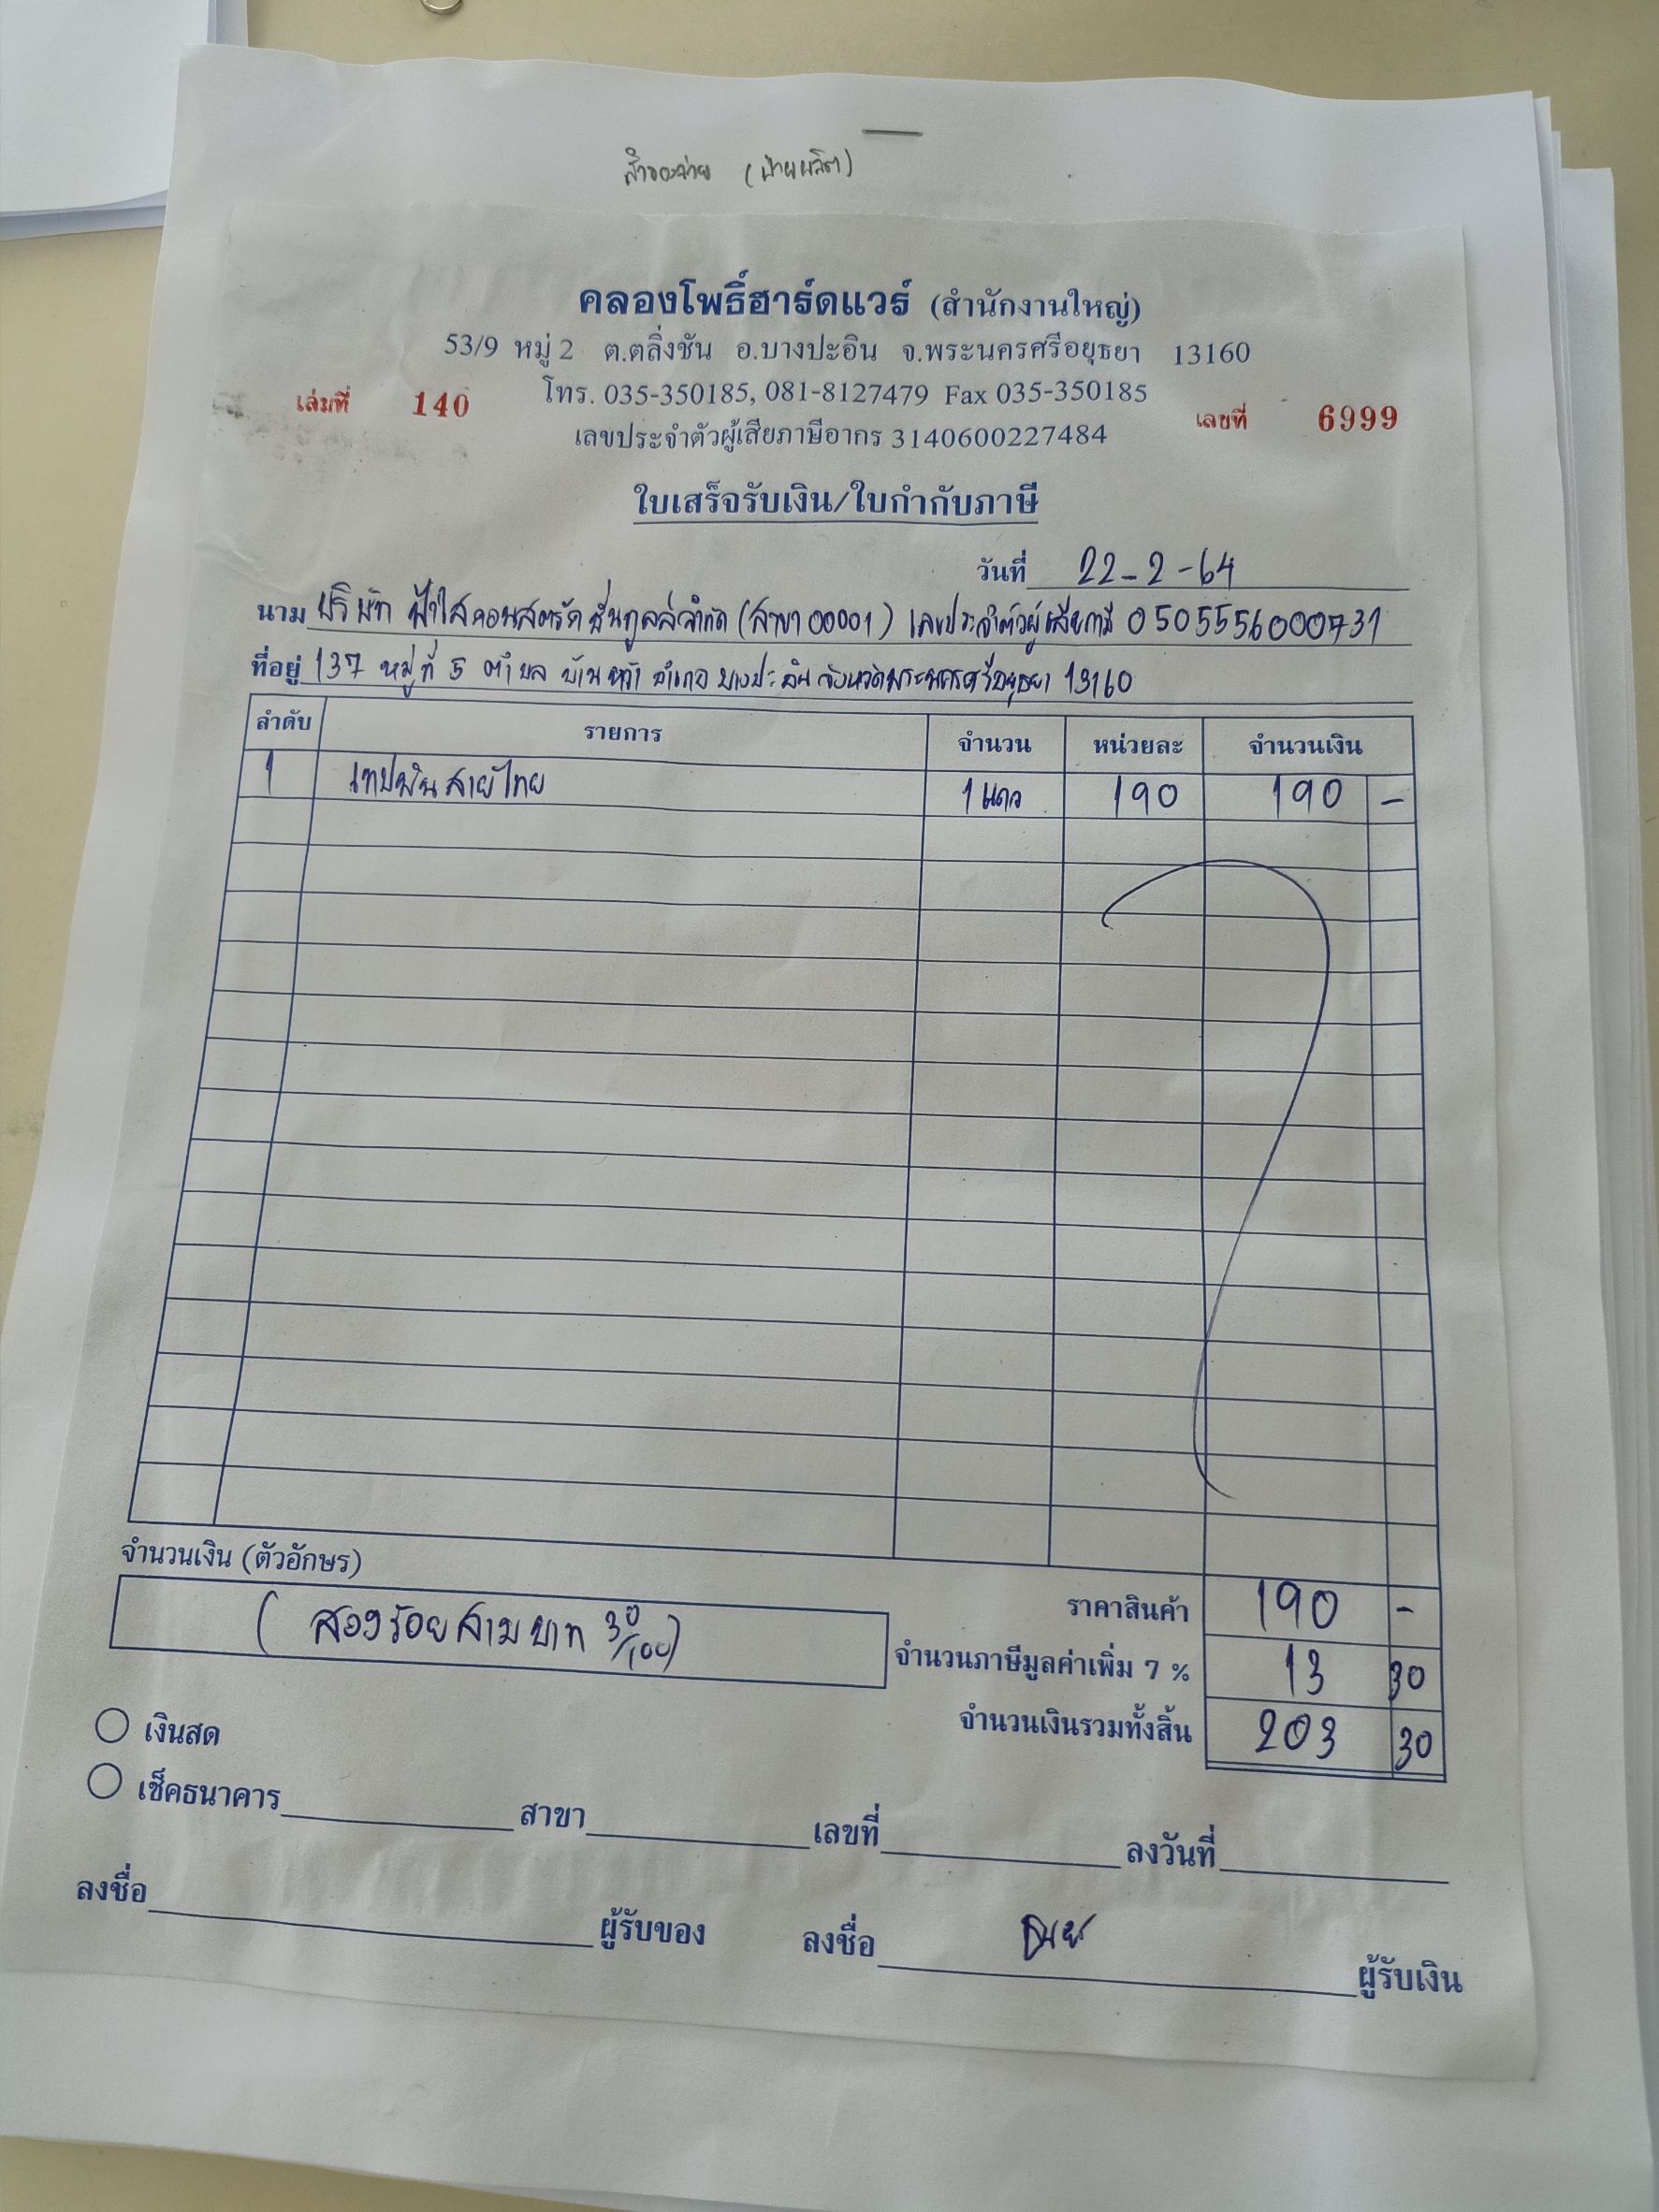 สำรองจ่าย (ฝ่ายผลิต)
คลองโพธิ์ฮาร์ดแวร์ (สำนักงานใหญ่)
53/9 หมู่ 2 ต.ตลิ่งชัน อ.บางปะอิน จ.พระนครศรีอยุธยา 13160
โทร. 035-350185, 081-8127479 Fax 035-350185
เล่มที่ 140
เลขที่ 6999
เลขประจำตัวผู้เสียภาษีอากร 3140600227484
ใบเสร็จรับเงิน/ใบกำกับภาษี
วันที่ 22-2-64
นาม บริษัท ฟ้าใสคอนสตรัคชั่นทูลส์จำกัด (สาขา 00001) เลขประจำตัวผู้เสียภาษี 0505556000731
ที่อยู่ 137 หมู่ที่ 5 ตำบล บ้านหว้า อำเภอ บางปะอิน จังหวัดพระนครศรีอยุธยา 13160
ลำดับ รายการ จำนวน หน่วยละ จำนวนเงิน
1 เทปพันสายไทย 1 แถว 190 190 -
จำนวนเงิน (ตัวอักษร)
(สองร้อยสามบาท 30/100)
ราคาสินค้า 190 -
จำนวนภาษีมูลค่าเพิ่ม 7 % 13 30
จำนวนเงินรวมทั้งสิ้น 203 30
เงินสด
เช็คธนาคาร สาขา เลขที่ ลงวันที่
ลงชื่อ ผู้รับของ ลงชื่อ ผู้รับเงิน